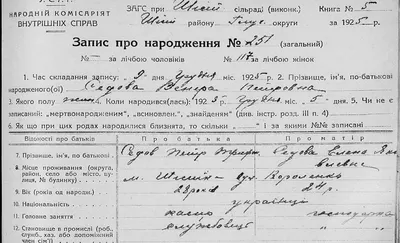 НАРОДНІЙ КОМІСАРІЯТ
ВНУТРІШНІХ СПРАВ
ЗАГС при сільраді (виконк.) Книга № 5
району округи за 1925 р.
Запис про народження № 251 (загальний)
№ — за лічбою чоловіків № 117 за лічбою жінок
1. Час складання запису: 9 дня грудня міс. 1925 р. 2. Прізвище, ім'я, по-батькові
народженого(ої) Седова Венера Петровна
3. Якого полу Коли народився(лась): 1925 р. грудня міс. 5 дня. 5. Чи не є
записаний: „мертвонародженим", „всиновлен", „знайденим" (див. інстр. розд. III п. 4)
6. Як що при цих родах народилося близнята, то скільки — і за якими №№
Відомості про батьків Про батька Про матір
7. Прізвище, ім'я, по-батькові Седов Петр Седова Елена
8. Місце проживання (округа, район, село або місто, вулиця, № будинку) м. вул. Короленк
9. Вік (років од народження) 28 років 24 р.
10. Національність українці
11. Головне заняття господарка
12. Становище в промислі (роб. служб. хаз. або допоміжний зарібок) службовець "